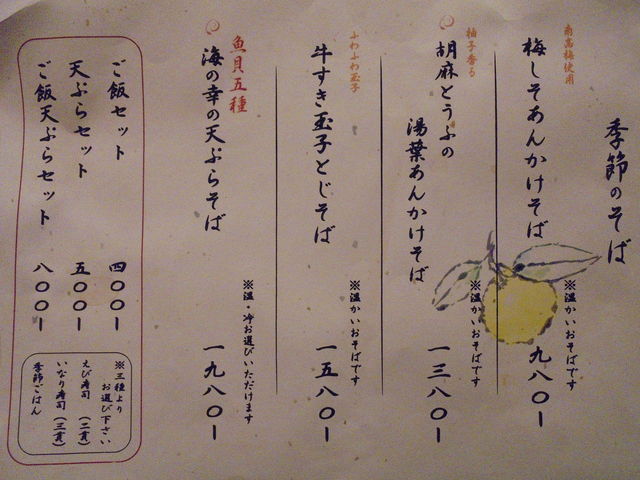 季節のそば
南高梅使用
梅しそあんかけそば
※温かいおそばです
九八〇ー
柚子香る
胡麻とうふの
湯葉あんかけそば
※温かいおそばです
一三八〇ー
ふわふわ玉子
牛すき玉子とじそば
※温かいおそばです
一五八〇ー
魚貝五種
海の幸の天ぷらそば
※温・冷お選びいただけます
一九八〇ー
ご飯セット 四〇〇ー
天ぷらセット 五〇〇ー
ご飯天ぷらセット 八〇〇ー
※三種より
お選び下さい
えび寿司(二貫)
いなり寿司(三貫)
季節ごはん